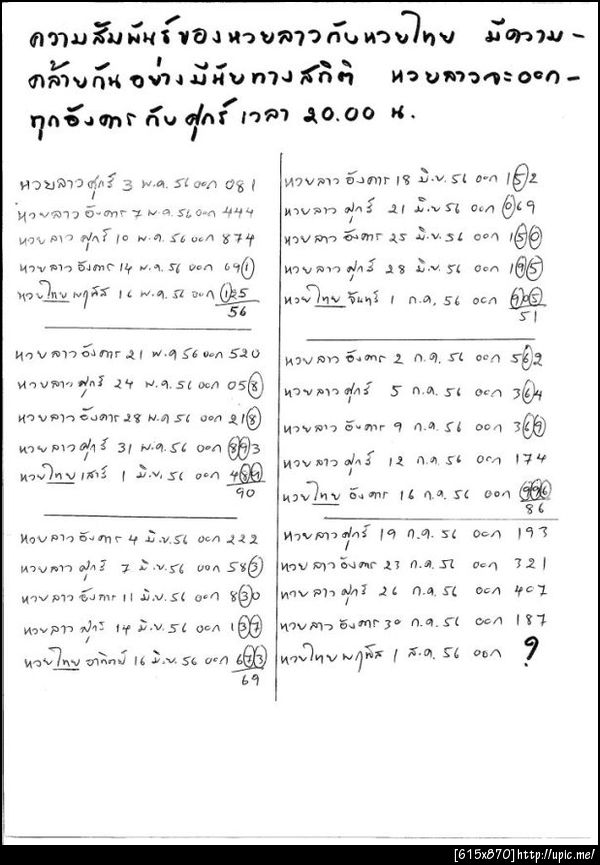 ความสัมพันธ์ของหวยลาวกับหวยไทย มีความ-
คล้ายกันอย่างมีนัยทางสถิติ หวยลาวจะออก-
ทุกอังคารกับศุกร์ เวลา 20.00 น.
หวยลาว ศุกร์ 3 พ.ค. 56 ออก 081
หวยลาว อังคาร 7 พ.ค. 56 ออก 444
หวยลาว ศุกร์ 10 พ.ค. 56 ออก 874
หวยลาว อังคาร 14 พ.ค. 56 ออก 691
หวยไทย พฤหัส 16 พ.ค. 56 ออก 125
56
หวยลาว อังคาร 21 พ.ค 56 ออก 520
หวยลาว ศุกร์ 24 พ.ค 56 ออก 058
หวยลาว อังคาร 28 พ.ค 56 ออก 218
หวยลาว ศุกร์ 31 พ.ค. 56 ออก 893
หวยไทย เสาร์ 1 มิ.ย. 56 ออก 489
90
หวยลาว อังคาร 4 มิ.ย. 56 ออก 222
หวยลาว ศุกร์ 7 มิ.ย. 56 ออก 583
หวยลาว อังคาร 11 มิ.ย. 56 ออก 830
หวยลาว ศุกร์ 14 มิ.ย. 56 ออก 137
หวยไทย อาทิตย์ 16 มิ.ย. 56 ออก 673
69
หวยลาว อังคาร 18 มิ.ย. 56 ออก 152
หวยลาว ศุกร์ 21 มิ.ย 56 ออก 069
หวยลาว อังคาร 25 มิ.ย. 56 ออก 150
หวยลาว ศุกร์ 28 มิ.ย. 56 ออก 195
หวยไทย จันทร์ 1 ก.ค. 56 ออก 905
51
หวยลาว อังคาร 2 ก.ค. 56 ออก 562
หวยลาว ศุกร์ 5 ก.ค. 56 ออก 364
หวยลาว อังคาร 9 ก.ค. 56 ออก 369
หวยลาว ศุกร์ 12 ก.ค. 56 ออก 174
หวยไทย อังคาร 16 ก.ค. 56 ออก 996
86
หวยลาว ศุกร์ 19 ก.ค. 56 ออก 193
หวยลาว อังคาร 23 ก.ค. 56 ออก 321
หวยลาว ศุกร์ 26 ก.ค. 56 ออก 407
หวยลาว อังคาร 30 ก.ค. 56 ออก 187
หวยไทย พฤหัส 1 ส.ค. 56 ออก ?
[615x870]http://upic.me/